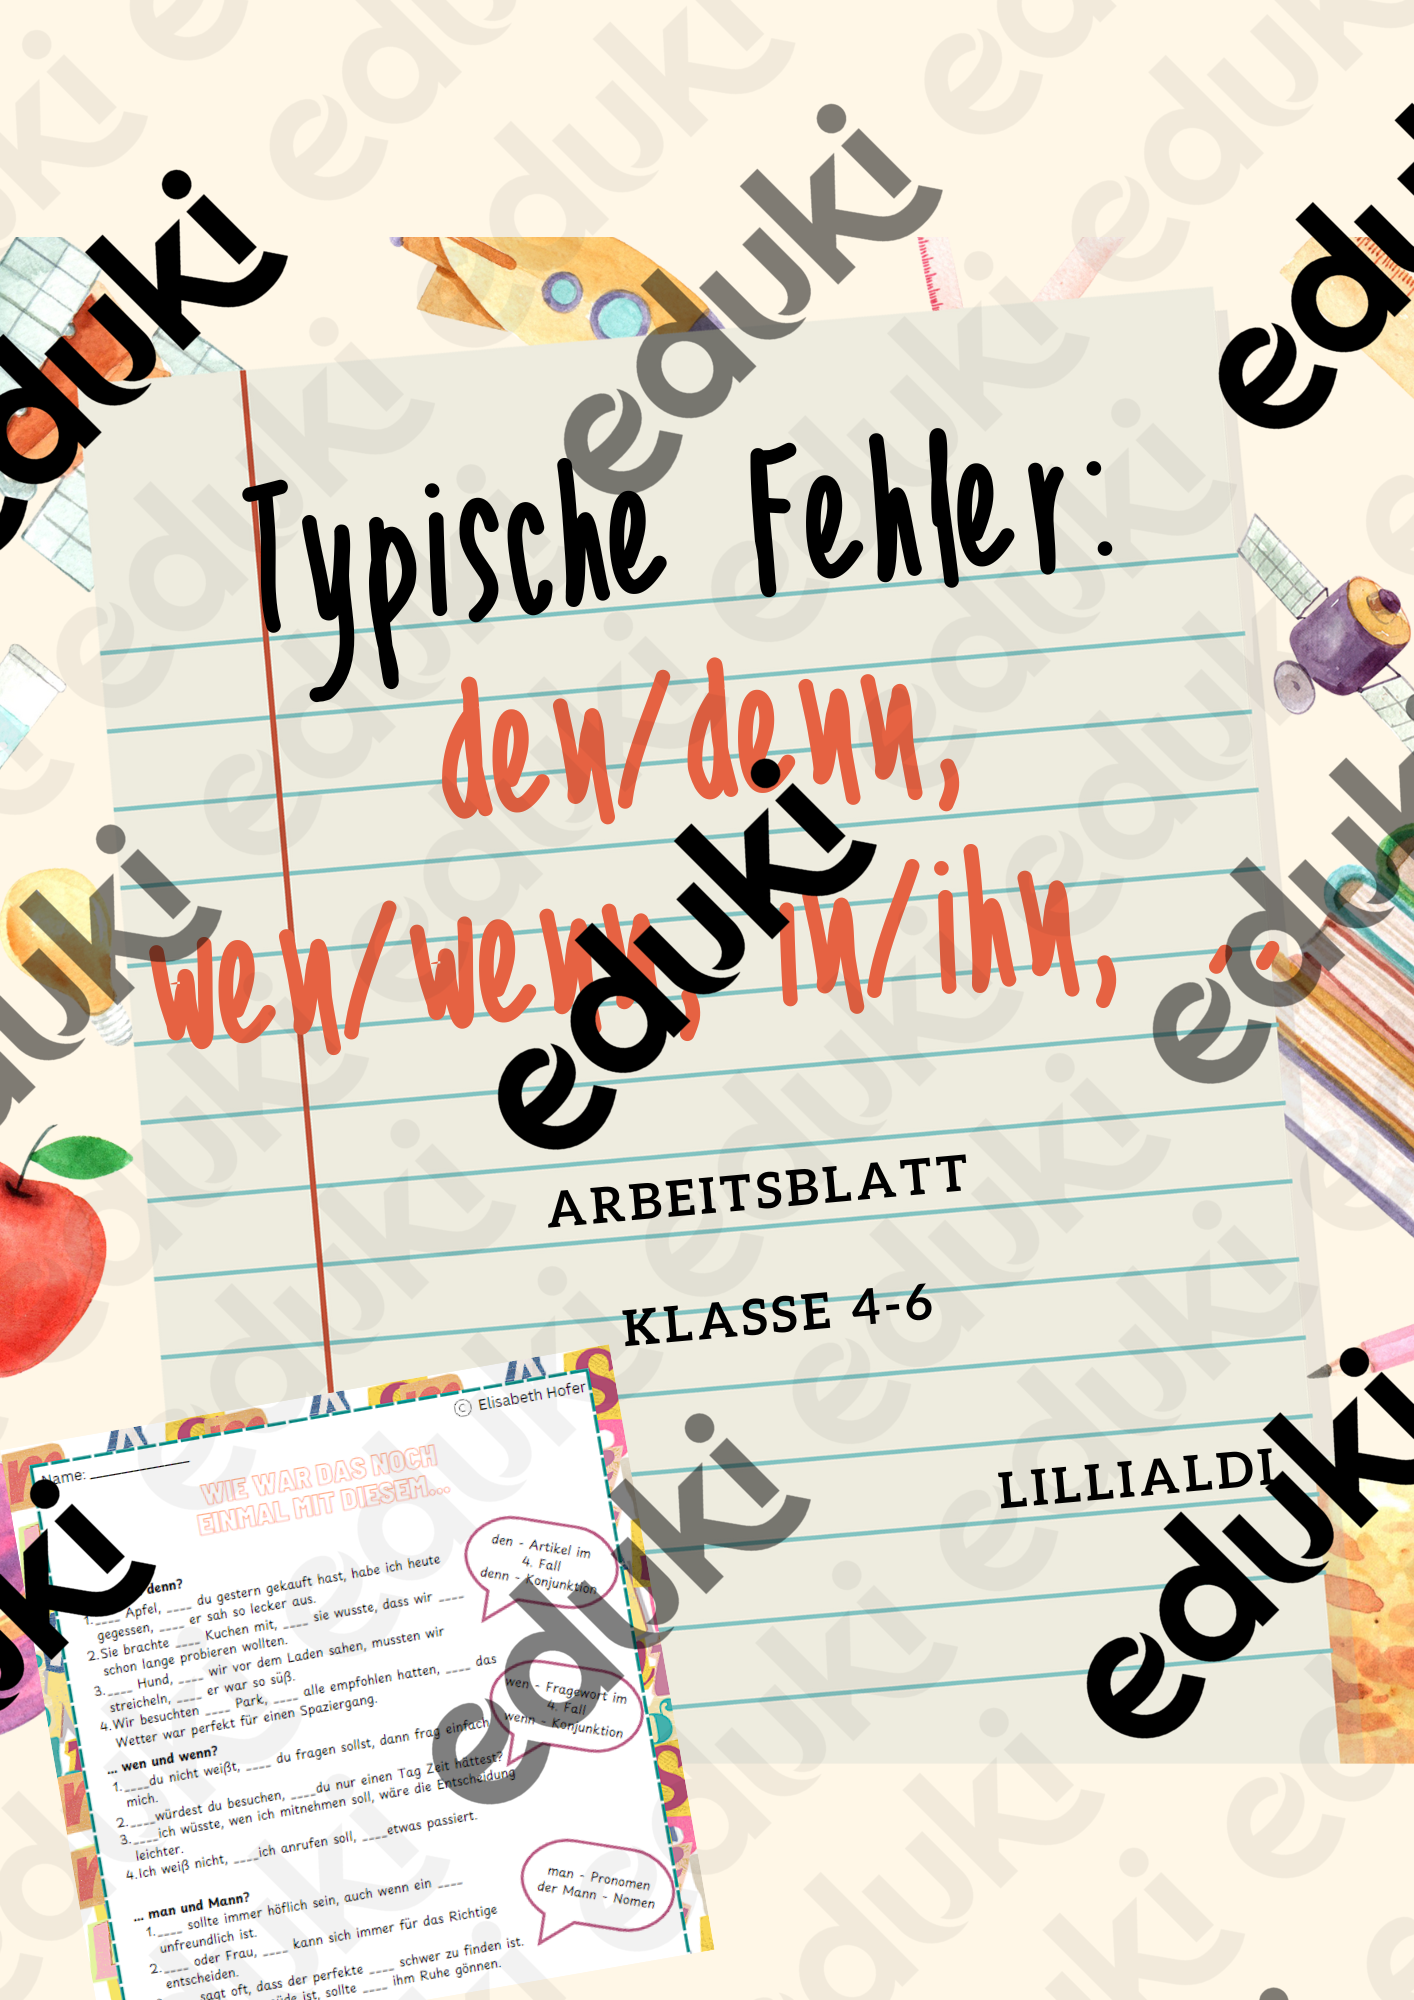 eduki
Typische Fehler:
den/denn,
wen/wenn, in/ihn, ...
ARBEITSBLATT
KLASSE 4-6
LILLIALDI
© Elisabeth Hofer
Name: ____________
WIE WAR DAS NOCH
EINMAL MIT DIESEM...
den - Artikel im
4. Fall
denn - Konjunktion
denn?
1.____ Apfel, ____ du gestern gekauft hast, habe ich heute
gegessen, ____ er sah so lecker aus.
2.Sie brachte ____ Kuchen mit, ____ sie wusste, dass wir ____
schon lange probieren wollten.
3.____ Hund, ____ wir vor dem Laden sahen, mussten wir
streicheln, ____ er war so süß.
4.Wir besuchten ____ Park, ____ alle empfohlen hatten, ____ das
Wetter war perfekt für einen Spaziergang.
wen - Fragewort im
4. Fall
wenn - Konjunktion
... wen und wenn?
1.____du nicht weißt, ____ du fragen sollst, dann frag einfach
mich.
2.____würdest du besuchen, ____du nur einen Tag Zeit hättest?
3.____ich wüsste, wen ich mitnehmen soll, wäre die Entscheidung
leichter.
4.Ich weiß nicht, ____ich anrufen soll, ____etwas passiert.
man - Pronomen
der Mann - Nomen
... man und Mann?
1.____ sollte immer höflich sein, auch wenn ein ____
unfreundlich ist.
2.____ oder Frau, ____ kann sich immer für das Richtige
entscheiden.
sagt oft, dass der perfekte ____ schwer zu finden ist.
ist, sollte ____ ihm Ruhe gönnen.